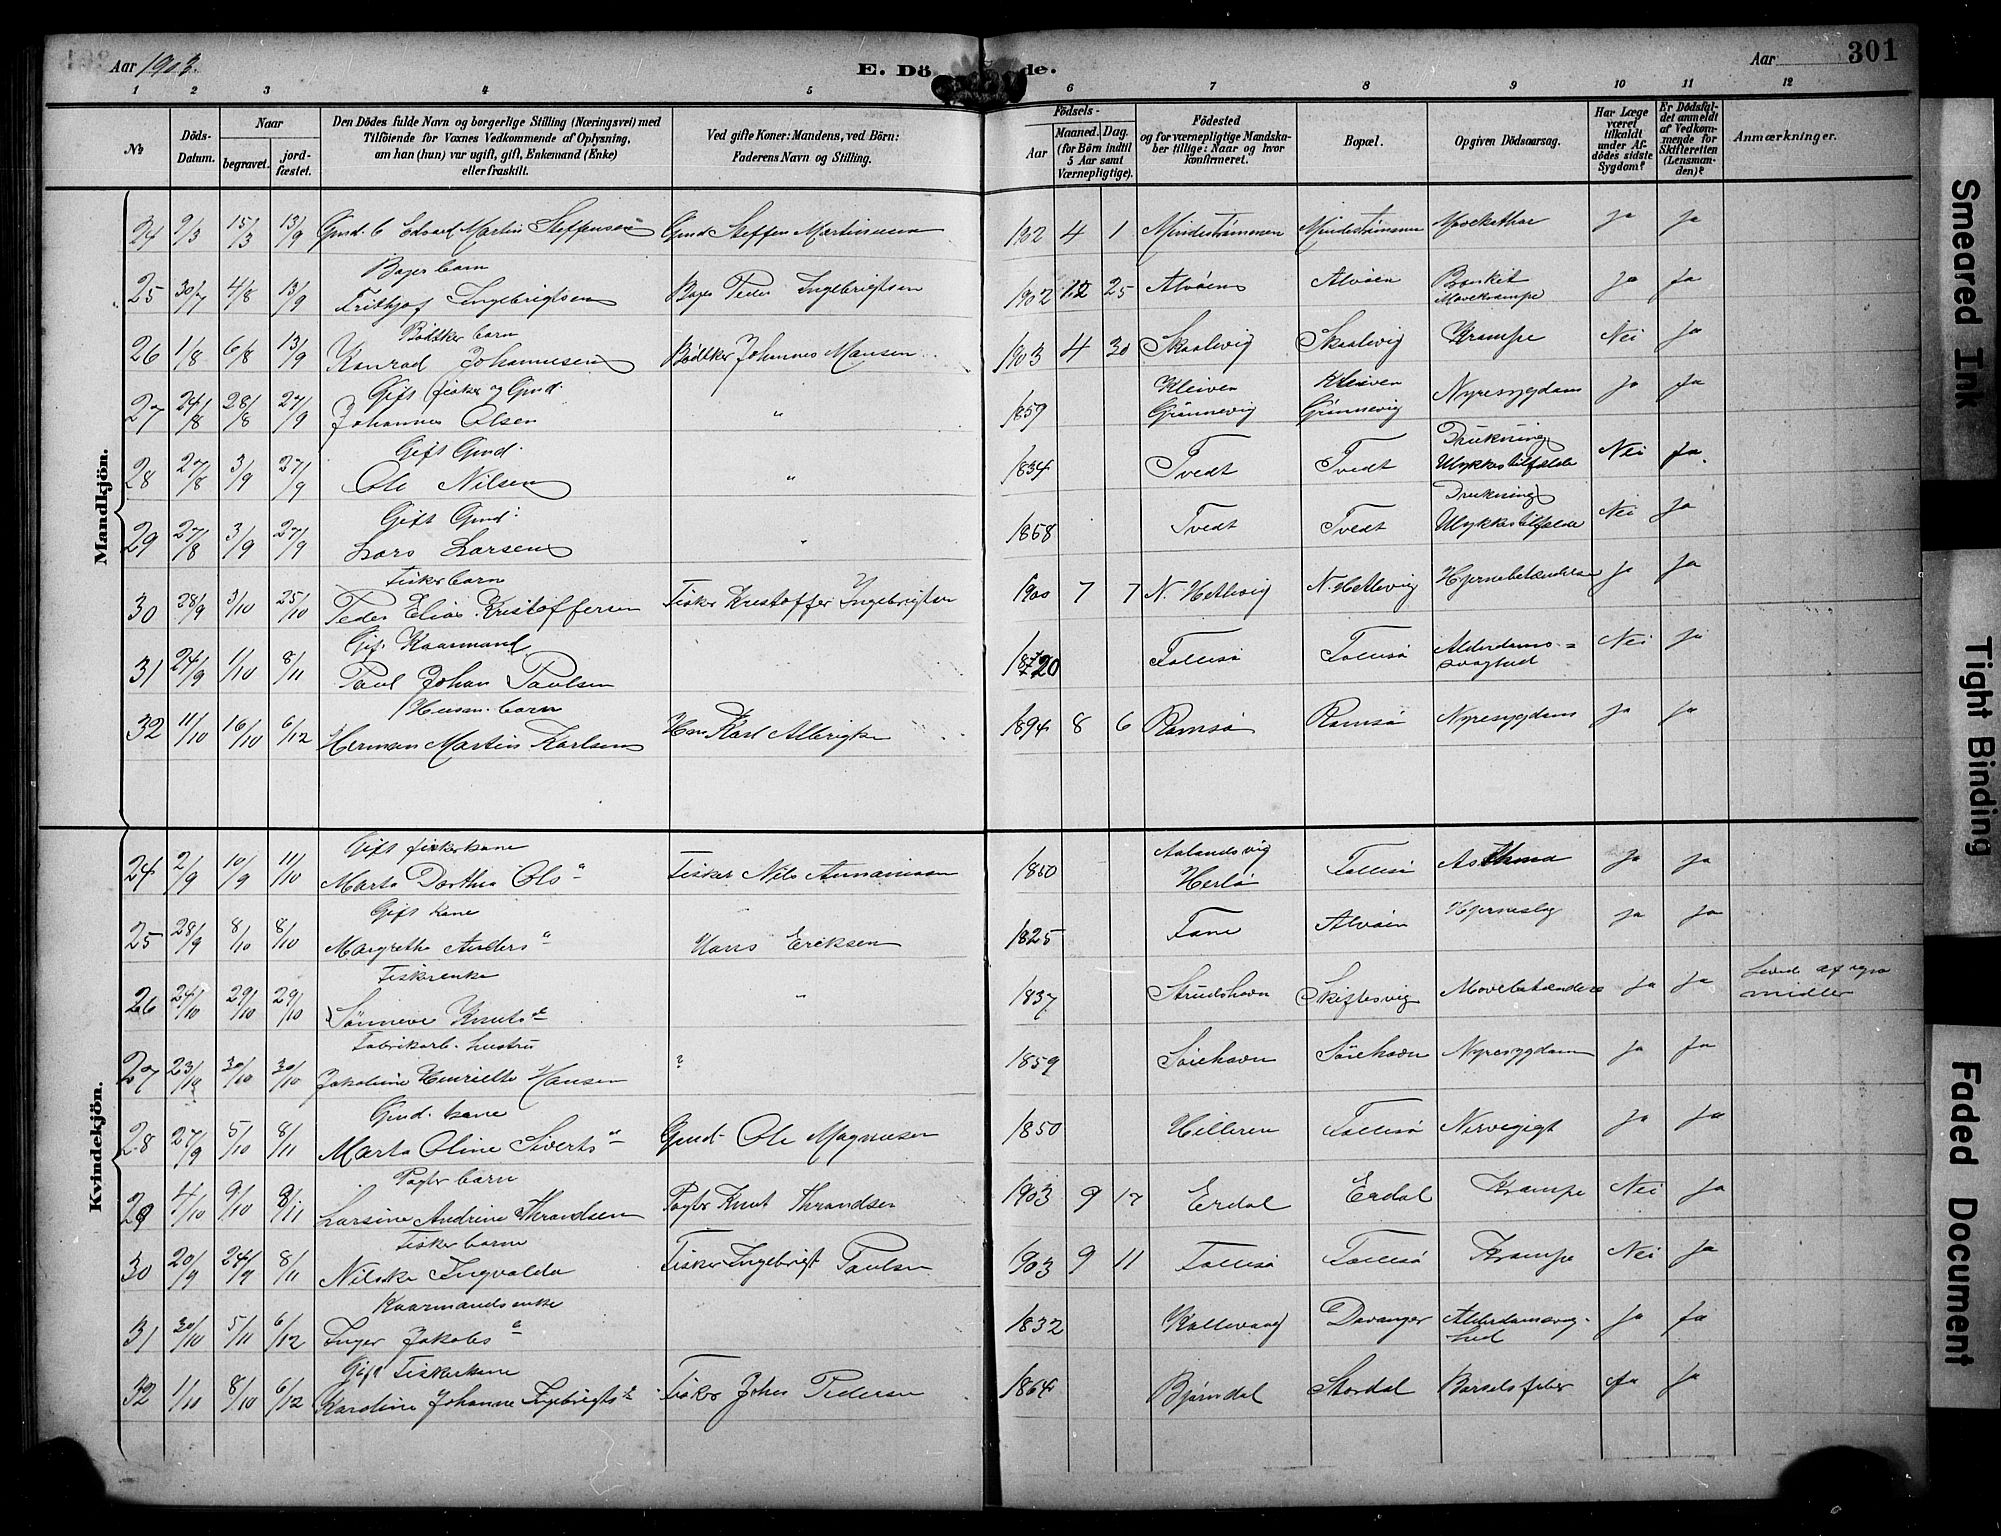 Aar 1903.
E. Dö de.
Aar 301
1 2 3 4 5 6 7 8 9 10 11 12
№ Döds-Datum. Naar begravet. jord-fæstet. Den Dödes fulde Navn og borgerlige Stilling (Næringsvei) med Tilföiende for Voxnes Vedkommende af Oplysning, om han (hun) var ugift, gift, Enkemand (Enke) eller fraskilt. Ved gifte Koner: Mandens, ved Börn: Faderens Navn og Stilling. Födsels- Aar Maaned. Dag. (for Börn indtil 5 Aar samt Værnepligtige). Födested og for værnepligtige Mandskaber tillige: Naar og hvor konfirmeret. Bopæl. Opgiven Dödsaarsag. Har Læge været tilkaldt under Afdödes sidste Sygdom? Er Dödsfaldet anmeldt af Vedkommende for Skifteretten (Lensmanden)? Anmærkninger.
Mandkjön.
24 2/3 15/3 13/9 Gmd. b Edvard Martin Steffensen Gmd Steffen Martinusen 1902 4 1 Mindestrømmen Mindestrømmen Ja Ja
Bager barn
25 30/7 4/8 13/9 Frithjof Ingebrigtsen Bager Peder Ingebrigtsen 1902 12 25 Alvøen Alvøen Bronkit Mavekrampe Ja Ja
Bødtker barn
26 1/8 6/8 13/9 Konrad Johannesen Bødtker Johannes Hansen 1903 4 30 Skaalevig Skaalevig Krampe Nei Ja
Gift fisker og Gmd.
27 24/8 28/8 27/9 Johannes Olsen " 1859 Kleiven Grønnevig Kleiven Grønnevig Nyresygdom Ja Ja
Gift Gmd.
28 27/8 3/9 27/9 Ole Nilsen " 1834 Tvedt Tvedt Drukning Ulykkestilfælde Nei Ja.
Gift Gmd.
29 27/8 3/9 27/9 Lars Larsen " 1868 Tvedt Tvedt Drukning Ulykkestilfælde Nei Ja
Fisker barn
30 28/9 3/10 25/10 Peder Elias Kristoffersen Fisker Kristoffer Ingebrigtsen 1900 7 7 N. Hetlevig N. Hetlevig Hjernebetændelse Ja Ja
Gift Kaarmand
31 24/9 1/10 8/11 Paul Johan Paulsen 1820 Follesø Follesø Alderdoms-svaghed Nei Ja
Husm. barn
32 11/10 16/10 6/12 Herman Martin Karlsen Hm Karl Albrigts 1894 8 6 Ramsø Ramsø Nyresygdom Ja Ja
Kvindekjön.
Gift fiskerkone
24 2/9 10/9 11/10 Marta Dorthea Ols Fisker Nils Annanias 1860 Aalandsvig Herlø Follesø Asthma Ja Ja
Gift Kone
25 28/9 8/10 8/10 Margrethe Anders Hans Eriksen 1825 Fane Alvøen Hjerneslag Ja Ja
Fiskerenke
26 24/10 29/10 29/10 Sønneve Knuts " 1837 Strudshavn Skiftesvig Mavebetændelse Ja Ja Leved af egne midler
Fabrikarb. hustru
27 23/10 30/10 30/10 Jakobine Henriette Hansen ? 1859 Sørehavn Sørehavn Nyresygdom Ja Ja
Gmd. kone
28 27/9 5/10 8/11 Marta Oline Siverts Gmd. Ole Magnusen 1850 Hilleren Follesø Nervegigt Ja Ja
Pagter barn
29 4/10 9/10 8/11 Larsine Andrine Thrandsen Pagter Knut Thrandsen 1903 9 17 Erdal Erdal Krampe Nei Ja
Fisker barn
30 20/9 24/9 8/11 Nilske Ingvalda Fisker Ingebrigt Paulsen 1903 9 11 Follesø Follesø Krampe Nei Ja
Kaarmands enke
31 30/10 5/11 6/12 Inger Jakobs 1832 Kollevaag Davanger Alderdomssvaghed Ja Ja
Gift Fiskerkone
32 1/10 8/10 6/12 Karoline Johanne Ingebrigts Fisker Johs Pedersen 1864 Bjørndal Stordal Barselsfeber Ja Ja
Smeared Ink
Tight Binding
Faded Document